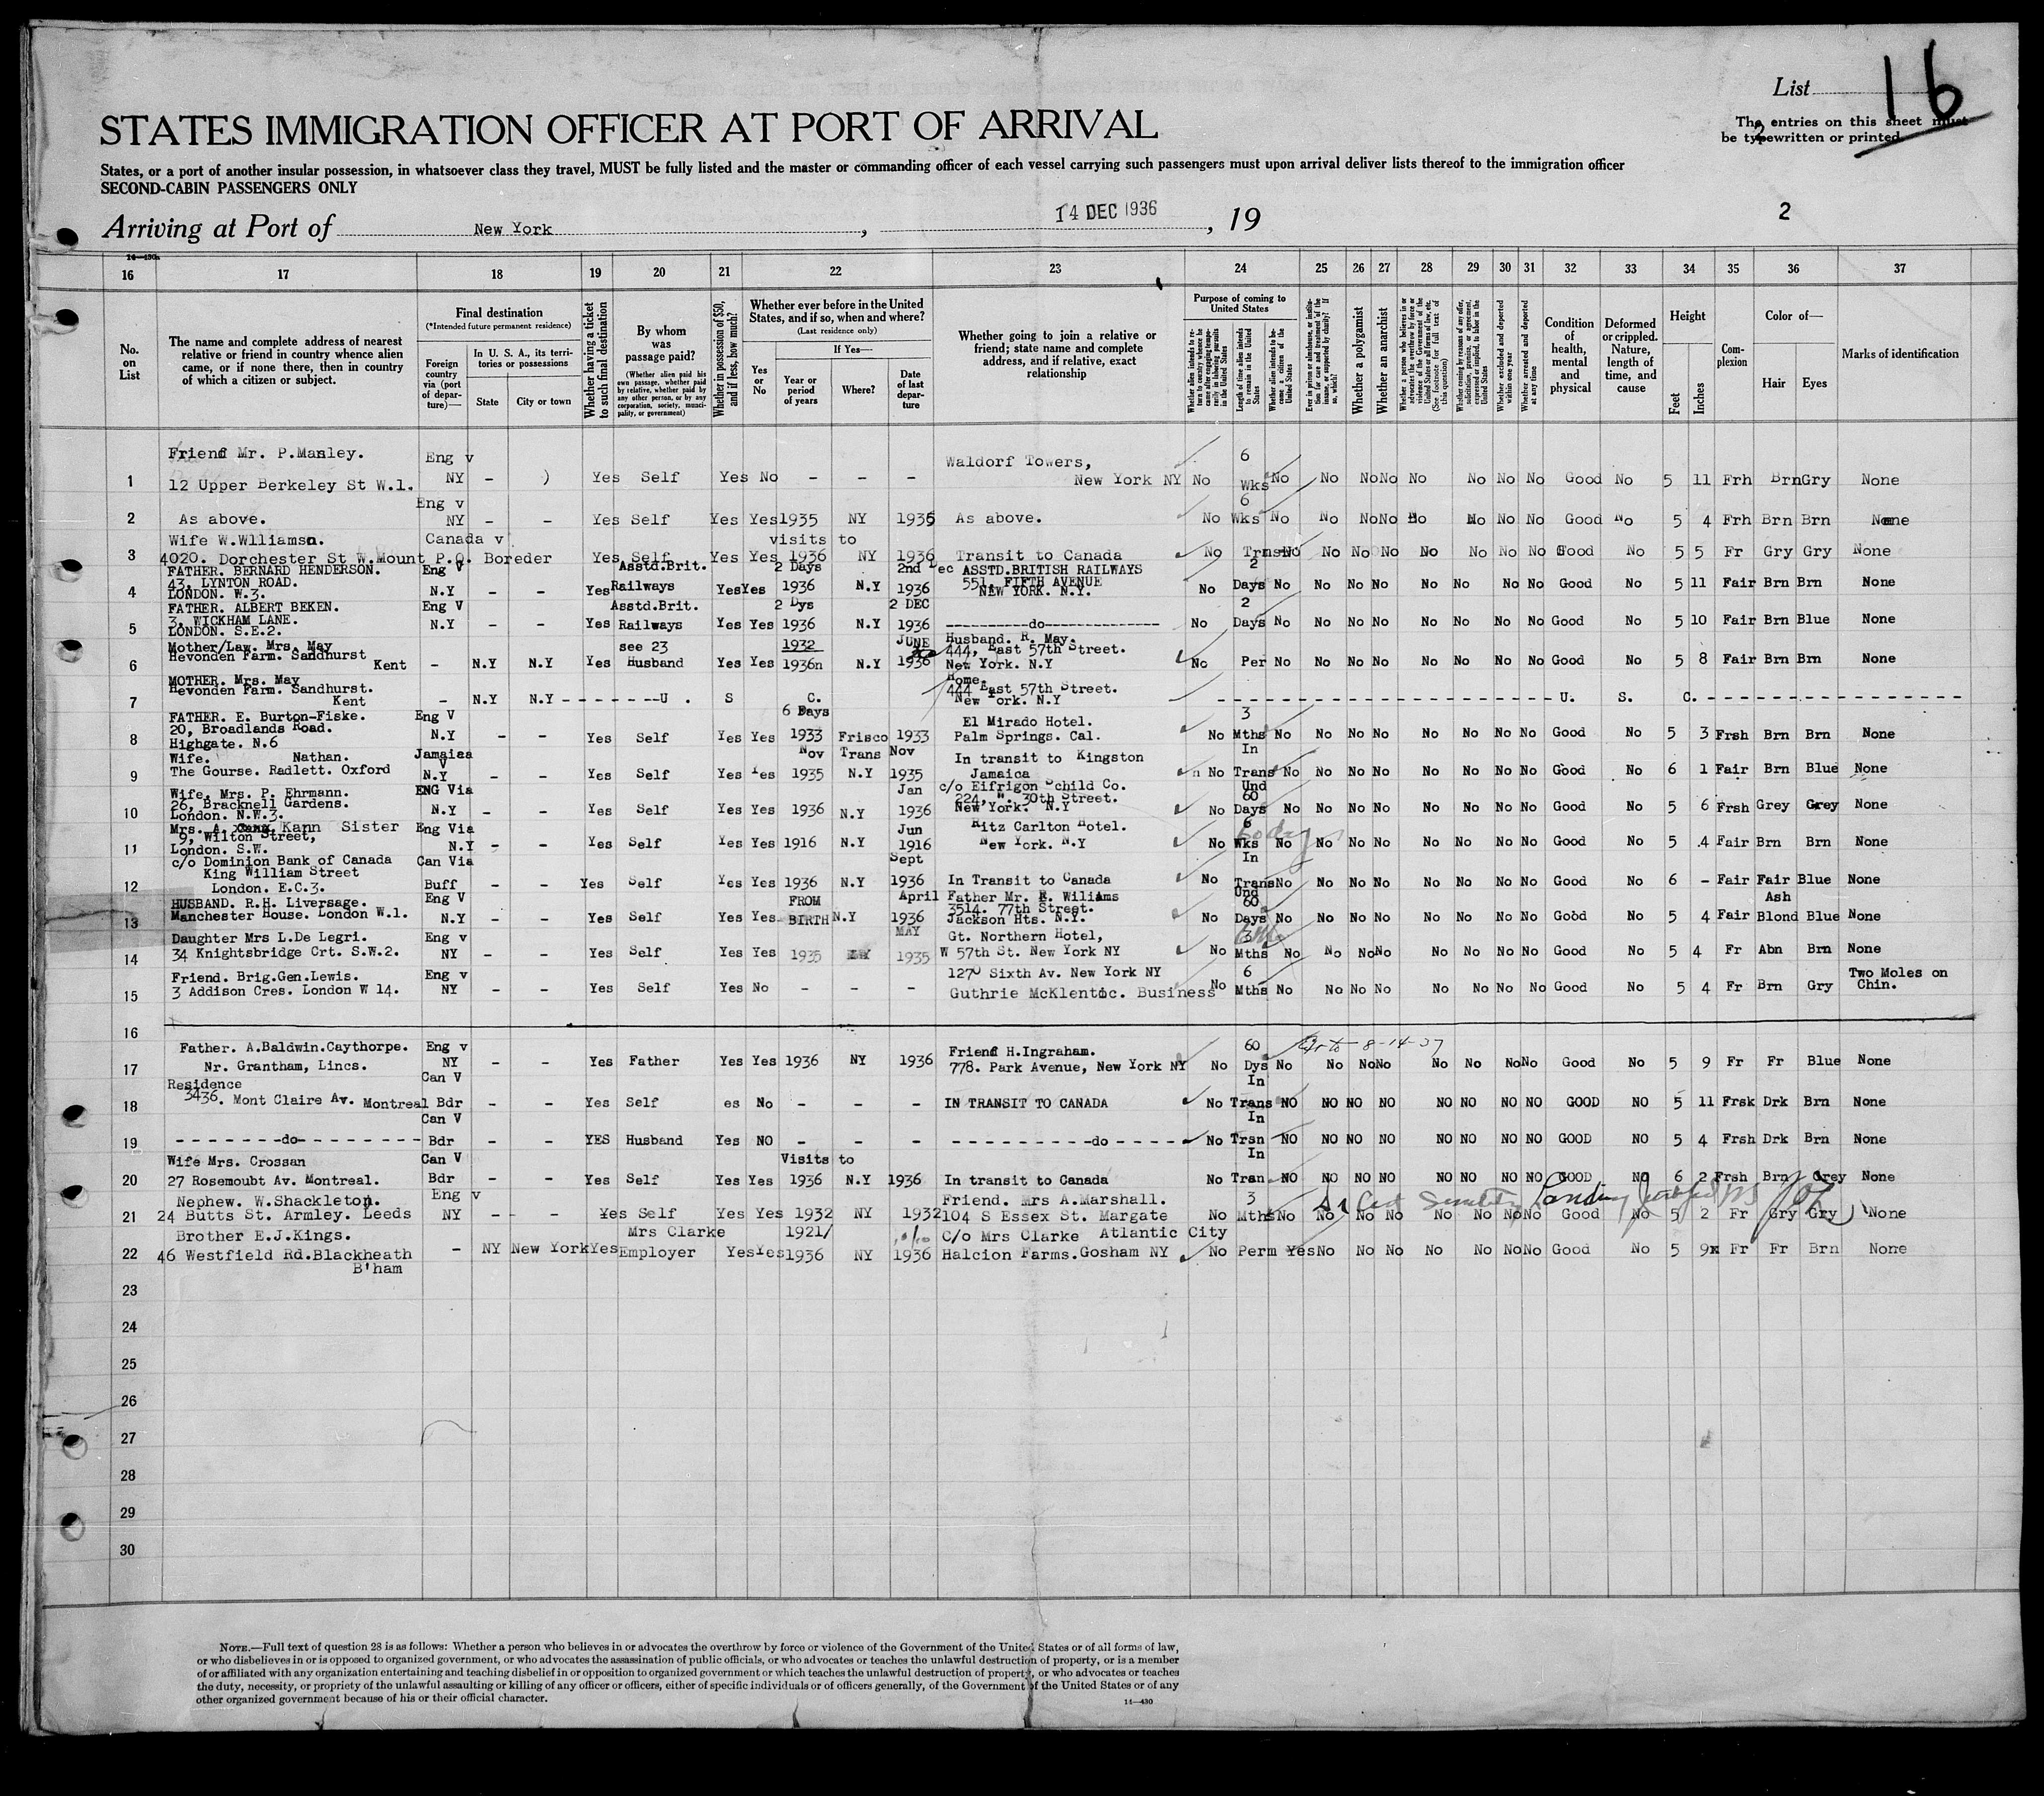 List 16
The entries on this sheet must
be typewritten or printed.
2
STATES IMMIGRATION OFFICER AT PORT OF ARRIVAL
States, or a port of another insular possession, in whatsoever class they travel, MUST be fully listed and the master or commanding officer of each vessel carrying such passengers must upon arrival deliver lists thereof to the immigration officer
SECOND-CABIN PASSENGERS ONLY
Arriving at Port of New York, 14 DEC 1936, 19
2
14—430a
16 17 18 19 20 21 22 23 24 25 26 27 28 29 30 31 32 33 34 35 36 37
No. on List
The name and complete address of nearest relative or friend in country whence alien came, or if none there, then in country of which a citizen or subject.
Final destination
(*Intended future permanent residence)
Foreign country via (port of departure)—
In U. S. A., its territories or possessions
State
City or town
Whether having a ticket to such final destination
By whom was passage paid?
(Whether alien paid his own passage, whether paid by relative, whether paid by any other person, or by any corporation, society, municipality, or government)
Whether in possession of $50, and if less, how much?
Whether ever before in the United States, and if so, when and where?
(Last residence only)
If Yes—
Yes or No
Year or period of years
Where?
Date of last departure
Whether going to join a relative or friend; state name and complete address, and if relative, exact relationship
Purpose of coming to United States
Whether alien intends to return to country whence he came after engaging temporarily in laboring pursuits in the United States
Length of time alien intends to remain in the United States
Whether alien intends to become a citizen of the United States
Ever in prison or almshouse, or institution for care and treatment of the insane, or supported by charity? If so, which?
Whether a polygamist
Whether an anarchist
Whether a person who believes in or advocates the overthrow by force or violence of the Government of the United States or all forms of law, etc. (See footnote for full text of this question)
Whether coming by reasons of any offer, solicitation, promise, or agreement, expressed or implied, to labor in the United States
Whether excluded and deported within one year
Whether arrested and deported at any time
Condition of health, mental and physical
Deformed or crippled. Nature, length of time, and cause
Height
Feet
Inches
Complexion
Color of—
Hair
Eyes
Marks of identification
Friend Mr. P.Manley. Eng v Waldorf Towers, 6
1 12 Upper Berkeley St W.1. NY - ) Yes Self Yes No - - - New York NY No Wks No No No No No No No No Good No 5 11 Frh Brn Gry None
Eng v 6
2 As above. NY - - Yes Self Yes Yes 1935 NY 1935 As above. No Wks No No No No No No No No Good No 5 4 Frh Brn Brn None
Wife W.Wlliamsn. Canada v visits to
3 4020. Dorchester St W.Mount P.Q. Boreder Yes Self Yes Yes 1936 NY 1936 Transit to Canada No Trns No No No No No No No No Good No 5 5 Fr Gry Gry None
FATHER. BERNARD HENDERSON. Eng V Asstd.Brit. 2 Days 2nd Dec ASSTD.BRITISH RAILWAYS 2
43, LYNTON ROAD. 551, FIFTH AVENUE
4 LONDON. W.3. N.Y - - Yes Railways Yes Yes 1936 N.Y 1936 NEW YORK. N.Y. No Days No No No No No No No No Good No 5 11 Fair Brn Brn None
FATHER. ALBERT BEKEN. Eng V Asstd.Brit. 2 Dys 2 DEC 2
3, WICKHAM LANE.
5 LONDON. S.E.2. N.Y - - Yes Railways Yes Yes 1936 N.Y 1936 ----------do-------------- No Days No No No No No No No No Good No 5 10 Fair Brn Blue None
Mother/Law. Mrs. May see 23 1932 JUNE Husband. R. May.
Hevonden Farm. Sandhurst 444, East 57th Street.
6 Kent - N.Y N.Y Yes Husband Yes Yes 1936n N.Y 1936 New York. N.Y No Per No No No No No No No No Good No 5 8 Fair Brn Brn None
MOTHER. Mrs. May Home.
Hevonden Farm. Sandhurst. 444 East 57th Street.
7 Kent - N.Y N.Y - - - - - - - -U . S C. New York. N.Y - - - - - U. S. C. - - - - -
FATHER. E. Burton-Fiske. Eng V 6 Days El Mirado Hotel. 3
20, Broadlands Road.
8 Highgate. N.6 N.Y - - Yes Self Yes Yes 1933 Frisco 1933 Palm Springs. Cal. No Mths No No No No No No No No Good No 5 3 Frsh Brn Brn None
Wife. Nathan. Jamaica V Nov Trans Nov In transit to Kingston In
9 The Gourse. Radlett. Oxford N.Y - - Yes Self Yes Yes 1935 N.Y 1935 Jamaica No Trans No No No No No No No No Good No 6 1 Fair Brn Blue None
Wife, Mrs. P. Ehrmann. ENG Via Jan c/o Eifrigon Schild Co. Und
26, Bracknell Gardens. 224, W. 30th Street. 60
10 London. N.W.3. N.Y - - Yes Self Yes Yes 1936 N.Y 1936 New York. N.Y No Days No No No No No No No No Good No 5 6 Frsh Grey Grey None
Mrs. A. Kann Sister Eng Via Jun Ritz Carlton Hotel. 6
9, Wilton Street, 60 days
11 London. S.W. N.Y - - Yes Self Yes Yes 1916 N.Y 1916 New York. N.Y No Wks No No No No No No No No Good No 5 .4 Fair Brn Brn None
c/o Dominion Bank of Canada Can Via Sept In
King William Street
12 London. E.C.3. Buff - - Yes Self Yes Yes 1936 N.Y 1936 In Transit to Canada No Trans No No No No No No No No Good No 6 - Fair Fair Blue None
HUSBAND. R.H. Liversage. Eng V FROM April Father Mr. E. Wiliams Und Ash
3514. 77th Street. 60
13 Manchester House. London W.1. N.Y - - Yes Self Yes Yes BIRTH N.Y 1936 Jackson Hts. N.Y. No Days No No No No No No No No Good No 5 4 Fair Blond Blue None
Daughter Mrs L.De Legri. Eng v MAY Gt. Northern Hotel, 3
14 34 Knightsbridge Crt. S.W.2. NY - - Yes Self Yes Yes 1935 1935 W 57th St. New York NY No Mths No No No No No No No No Good No 5 4 Fr Abn Brn None
Friend. Brig.Gen.Lewis. Eng v 1270 Sixth Av. New York NY 6 Two Moles on
15 3 Addison Cres. London W 14. NY - - Yes Self Yes No - - - Guthrie McKlentic. Business No Mths No No No No No No No No Good No 5 4 Fr Brn Gry Chin.
16
Father. A.Baldwin.Caythorpe. Eng v Friend H.Ingraham. 60 8-14-37
17 Nr. Grantham, Lincs. NY - - Yes Father Yes Yes 1936 NY 1936 778. Park Avenue, New York NY No Dys No No No No No No No No Good No 5 9 Fr Fr Blue None
Residence Can V In
18 3436. Mont Claire Av. Montreal Bdr - - Yes Self es No - - - IN TRANSIT TO CANADA No Trans NO NO NO NO NO NO NO NO GOOD NO 5 11 Frsk Drk Brn None
Can V In
19 - - - - - - -do- - - - - - - - Bdr - - YES Husband Yes NO - - - - - - - - - - -do - - - - - No Trsn NO NO NO NO NO NO NO NO GOOD NO 5 4 Frsh Drk Brn None
Wife Mrs. Crossan Can V Visits to In
20 27 Rosemoubt Av. Montreal. Bdr - - Yes Self Yes Yes 1936 N.Y 1936 In transit to Canada No Tran NO NO NO NO NO NO NO NO GOOD NO 6 2 Frsh Brn Grey None
Nephew. W.Shackleton. Eng v Friend. Mrs A.Marshall. 3 Landing
21 24 Butts St. Armley. Leeds NY - - - Yes Self Yes Yes 1932 NY 1932 104 S Essex St. Margate No Mths No No No No No No No No Good No 5 2 Fr Gry Gry None
Brother E.J.Kings. Mrs Clarke 1921/ C/o Mrs Clarke Atlantic City
22 46 Westfield Rd.Blackheath - NY New York Yes Employer Yes Yes 1936 NY 1936 Halcion Farms.Gosham NY No Perm Yes No No No No No No No Good No 5 9x Fr Fr Brn None
B'ham
23
24
25
26
27
28
29
30
NOTE.—Full text of question 28 is as follows: Whether a person who believes in or advocates the overthrow by force or violence of the Government of the United States or of all forms of law,
or who disbelieves in or is opposed to organized government, or who advocates the assassination of public officials, or who advocates or teaches the unlawful destruction of property, or is a member
of or affiliated with any organization entertaining and teaching disbelief in or opposition to organized government or which teaches the unlawful destruction of property, or who advocates or teaches
the duty, necessity, or propriety of the unlawful assaulting or killing of any officer or officers, either of specific individuals or of officers generally, of the Government of the United States or of any
other organized government because of his or their official character.
14—430